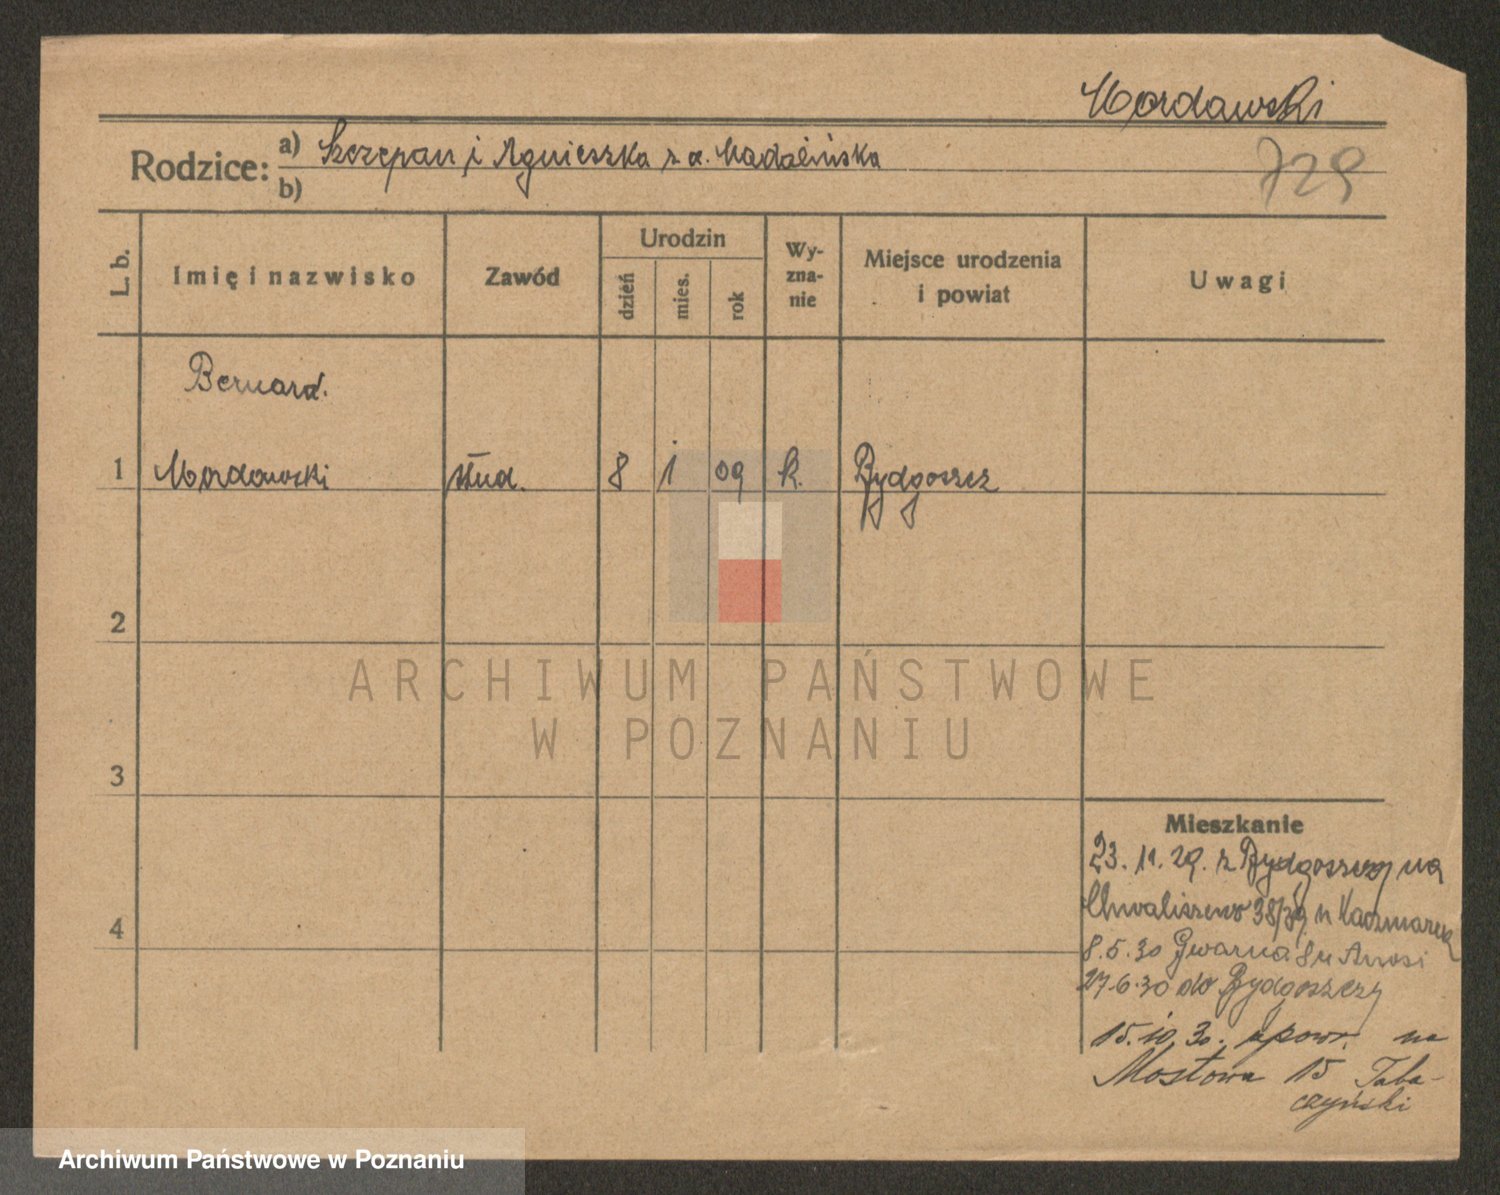 Mordawski
Rodzice: a) Szczepan i Agnieszka z d. Madalińska
b)
729
L. b.
Imię i nazwisko
Zawód
Urodzin
dzień
mies.
rok
Wy-
zna-
nie
Miejsce urodzenia
i powiat
Uwagi
Bernard.
1 Mordawski stud. 8 1 09 k. Bydgoszcz
2
3
4
Mieszkanie
23. 11. 29. z Bydgoszczy na
Chwaliszewo 38/39 u Kaczmarek
8.5.30 Gwarna 8 u
27.6.30 do Bydgoszczy
15.10.30. z powr. na
Mostowa 15 Taba-
czyński
ARCHIWUM PAŃSTWOWE
W POZNANIU
Archiwum Państwowe w Poznaniu